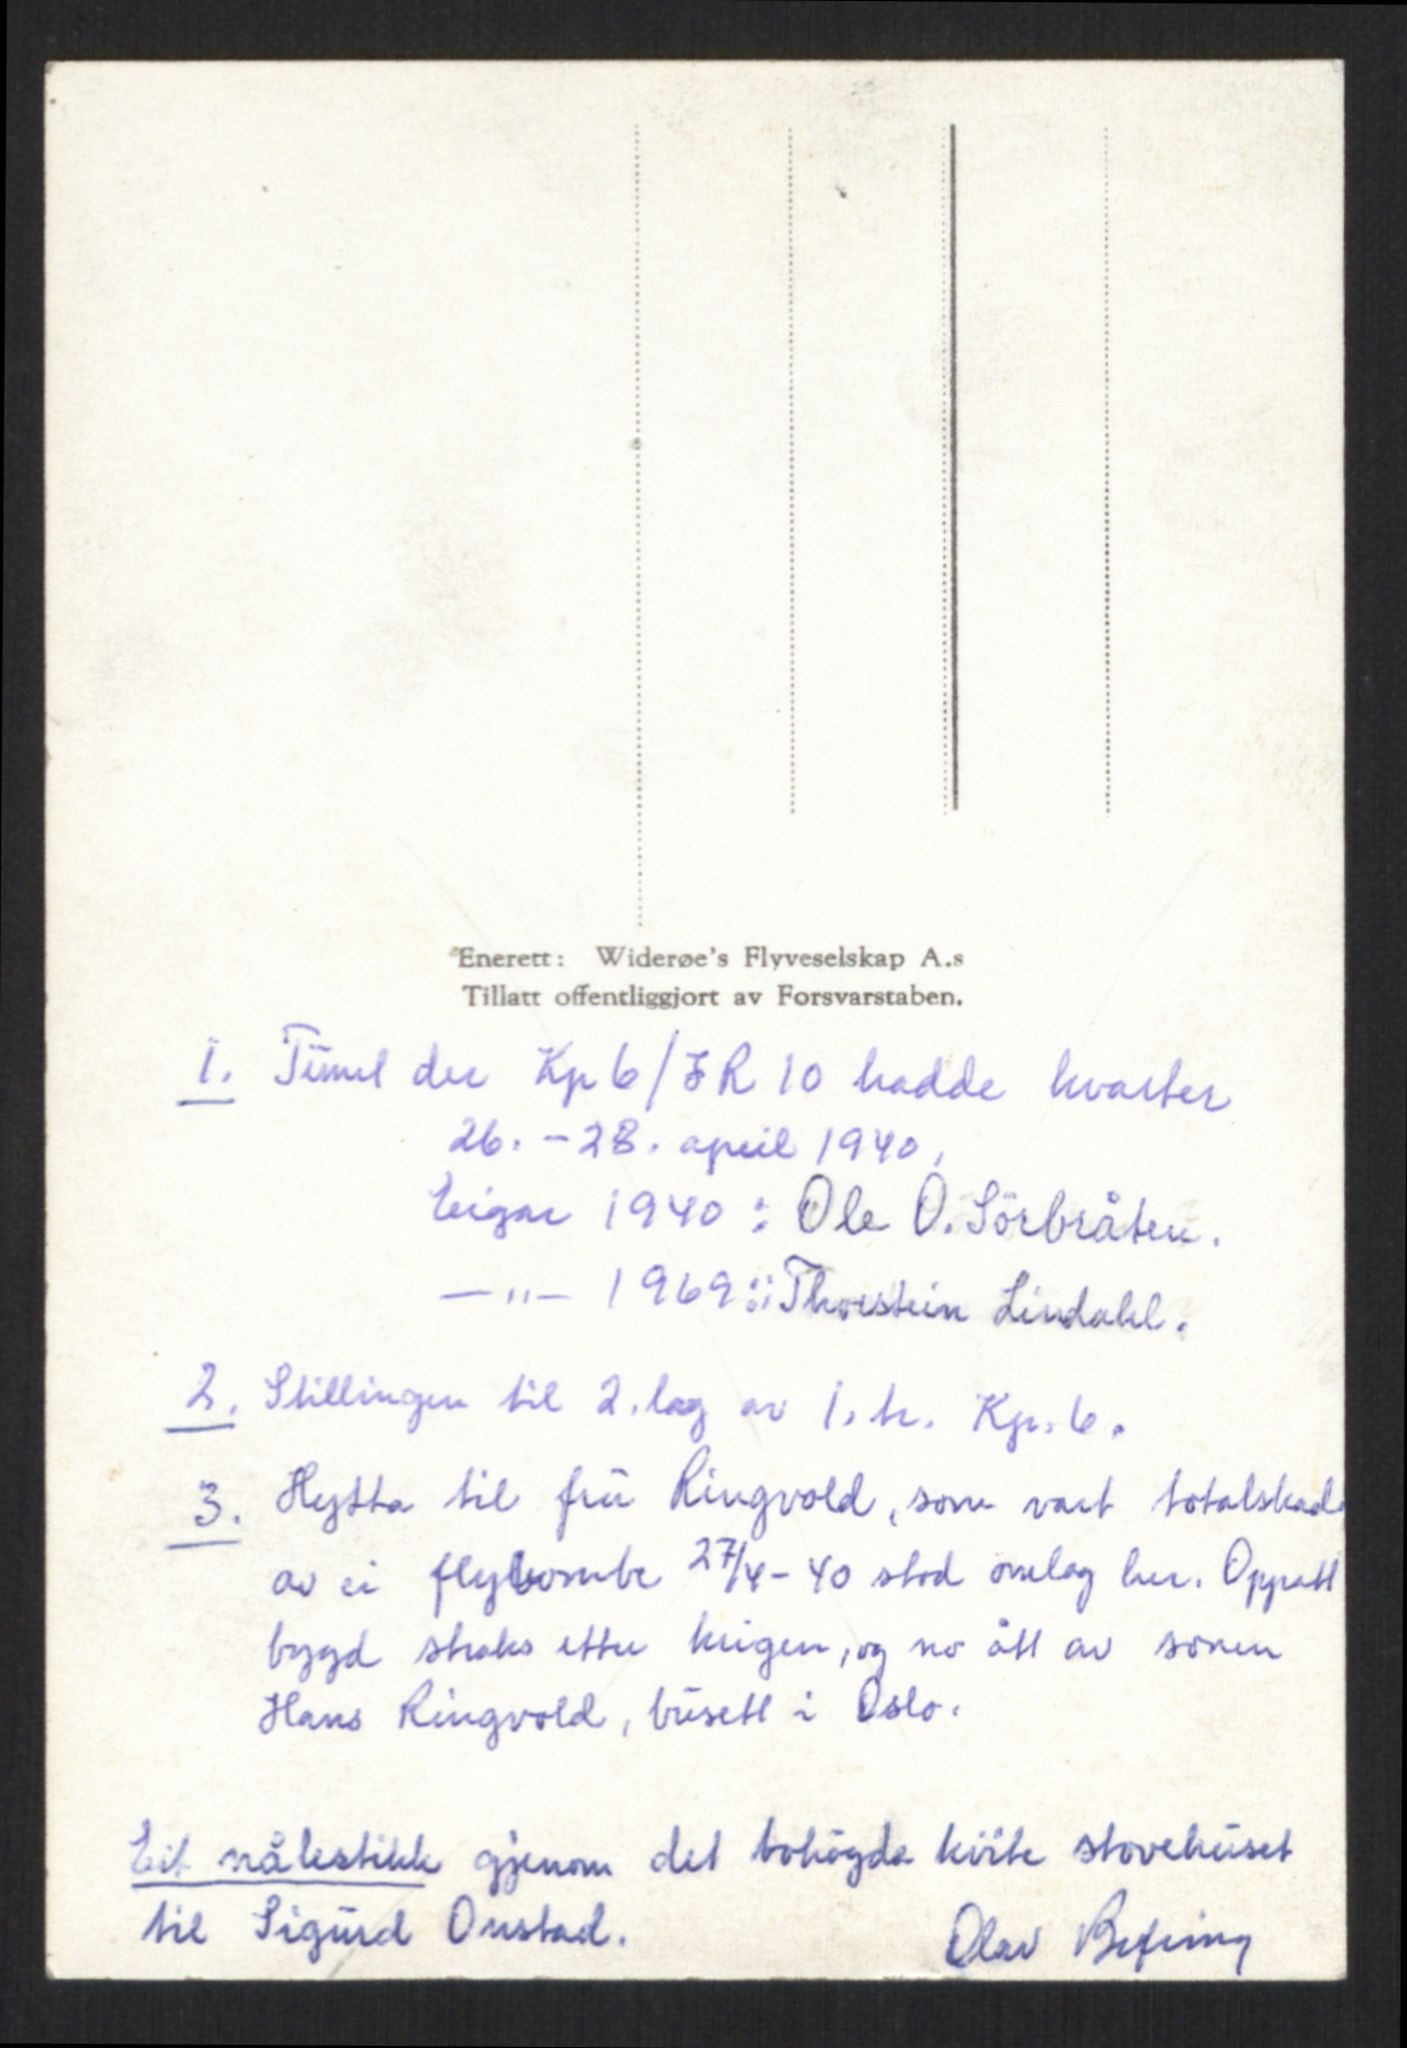 Enerett: Widerøe's Flyveselskap A.s
Tillatt offentliggjort av Forsvarstaben.
1. Tunet der Kp 6/IR 10 hadde kvarter
26. - 28. april 1940.
Eigar 1940 : Ole O. Sörbråten.
—"— 1969 : Thorstein Lindahl.
2. Stillingen til 2. lag av 1. tr. Kp. 6.
3. Hytta til fru Ringvold, som vart totalskad
av ei flybombe 27/4-40 stod omlag her. Oppatt
bygd straks etter krigen, og no ått av sonen
Hans Ringvold, busett i Oslo.
Eit nålestikk gjenom det tohögda kvite stovehuset
til Sigurd Onstad.
Olav